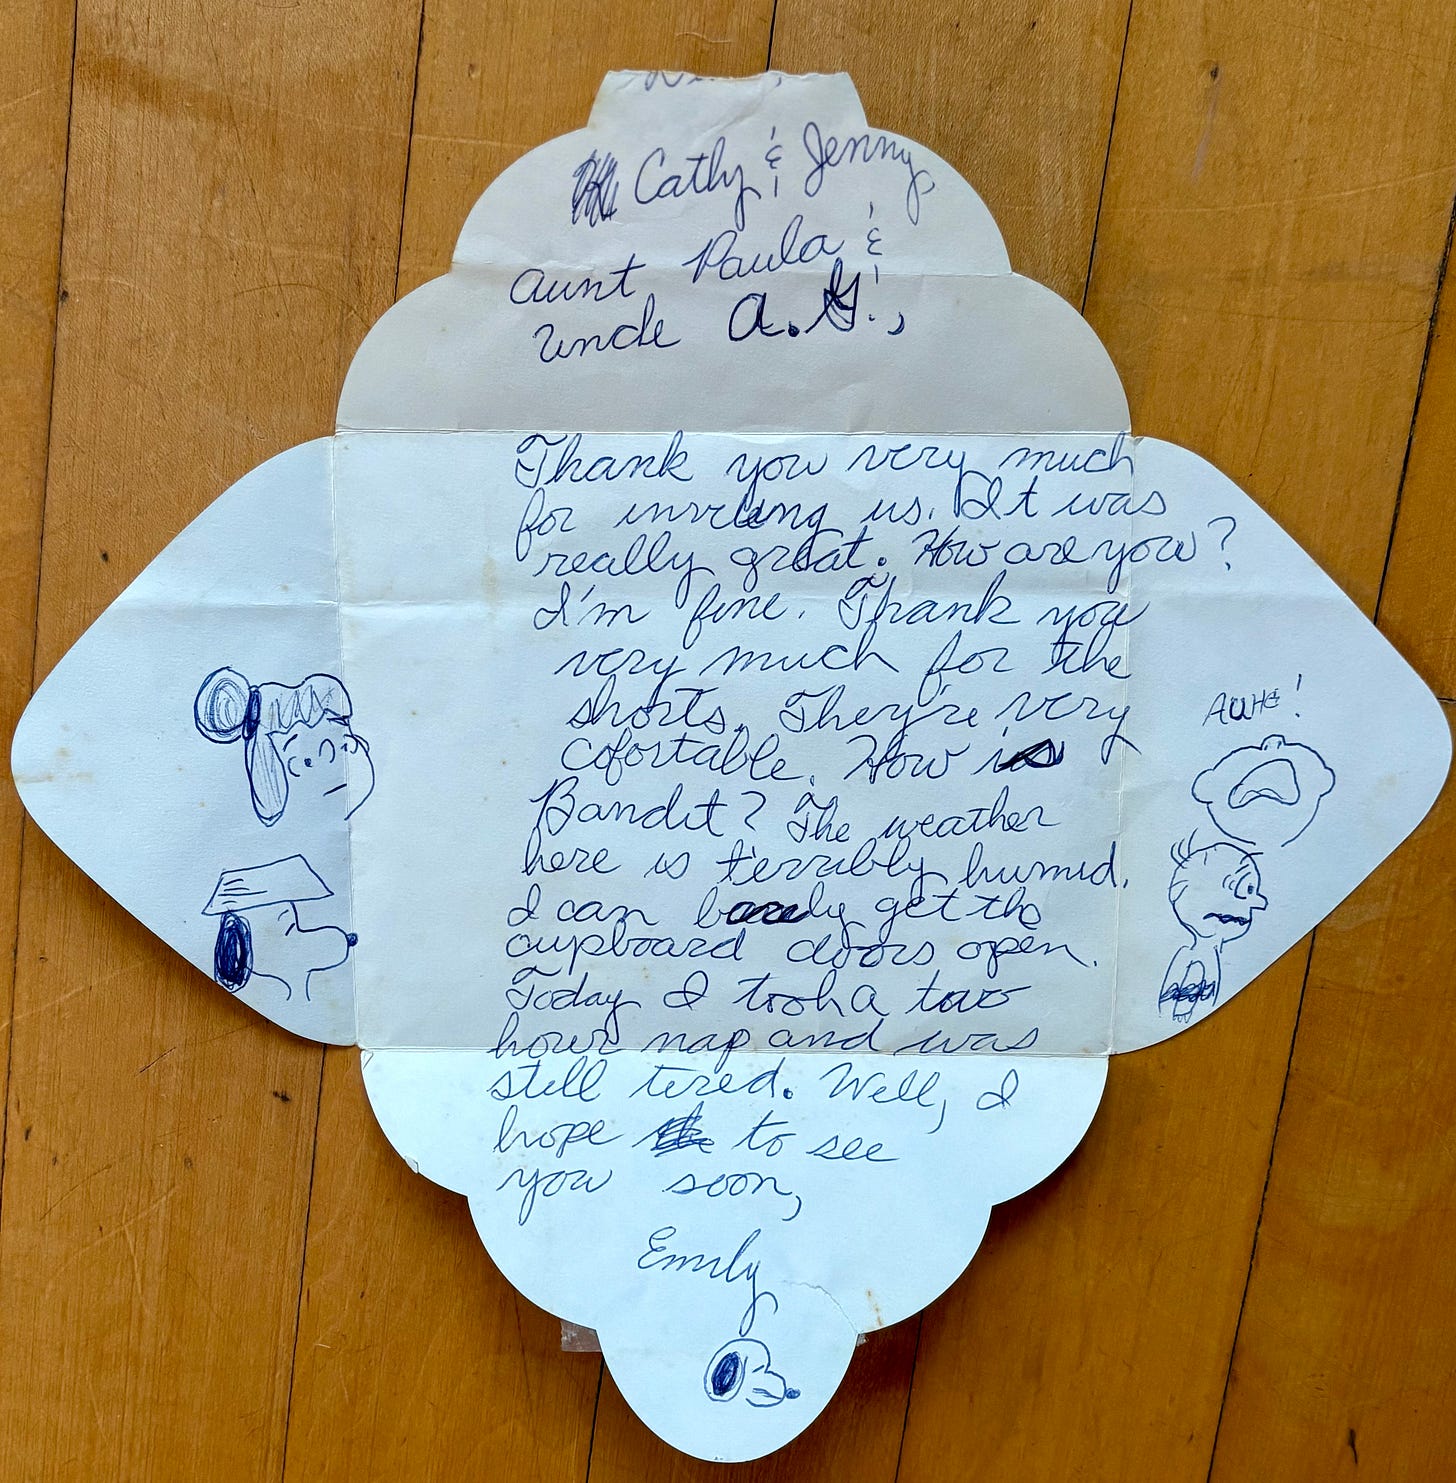 Cathy & Jenny,
Aunt Paula &
Uncle A.G.,
Thank you very much
for inviting us. It was
really great. How are you?
I'm fine. Thank you
very much for the
shorts. They're very
cofortable. How is
Bandit? The weather
here is terribly humid.
I can barely get the
cupboard doors open.
Today I took a two
hour nap and was
still tired. Well, I
hope to see
you soon,
Emily
AUHG!